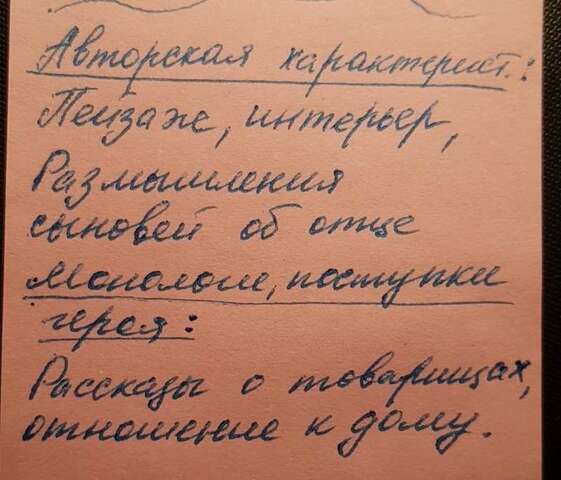 Авторская характерист.:
Пейзаж, интерьер,
Размышления
сыновей об отце
Монологи, поступки
героя:
Рассказы о товарищах,
отношение к дому.